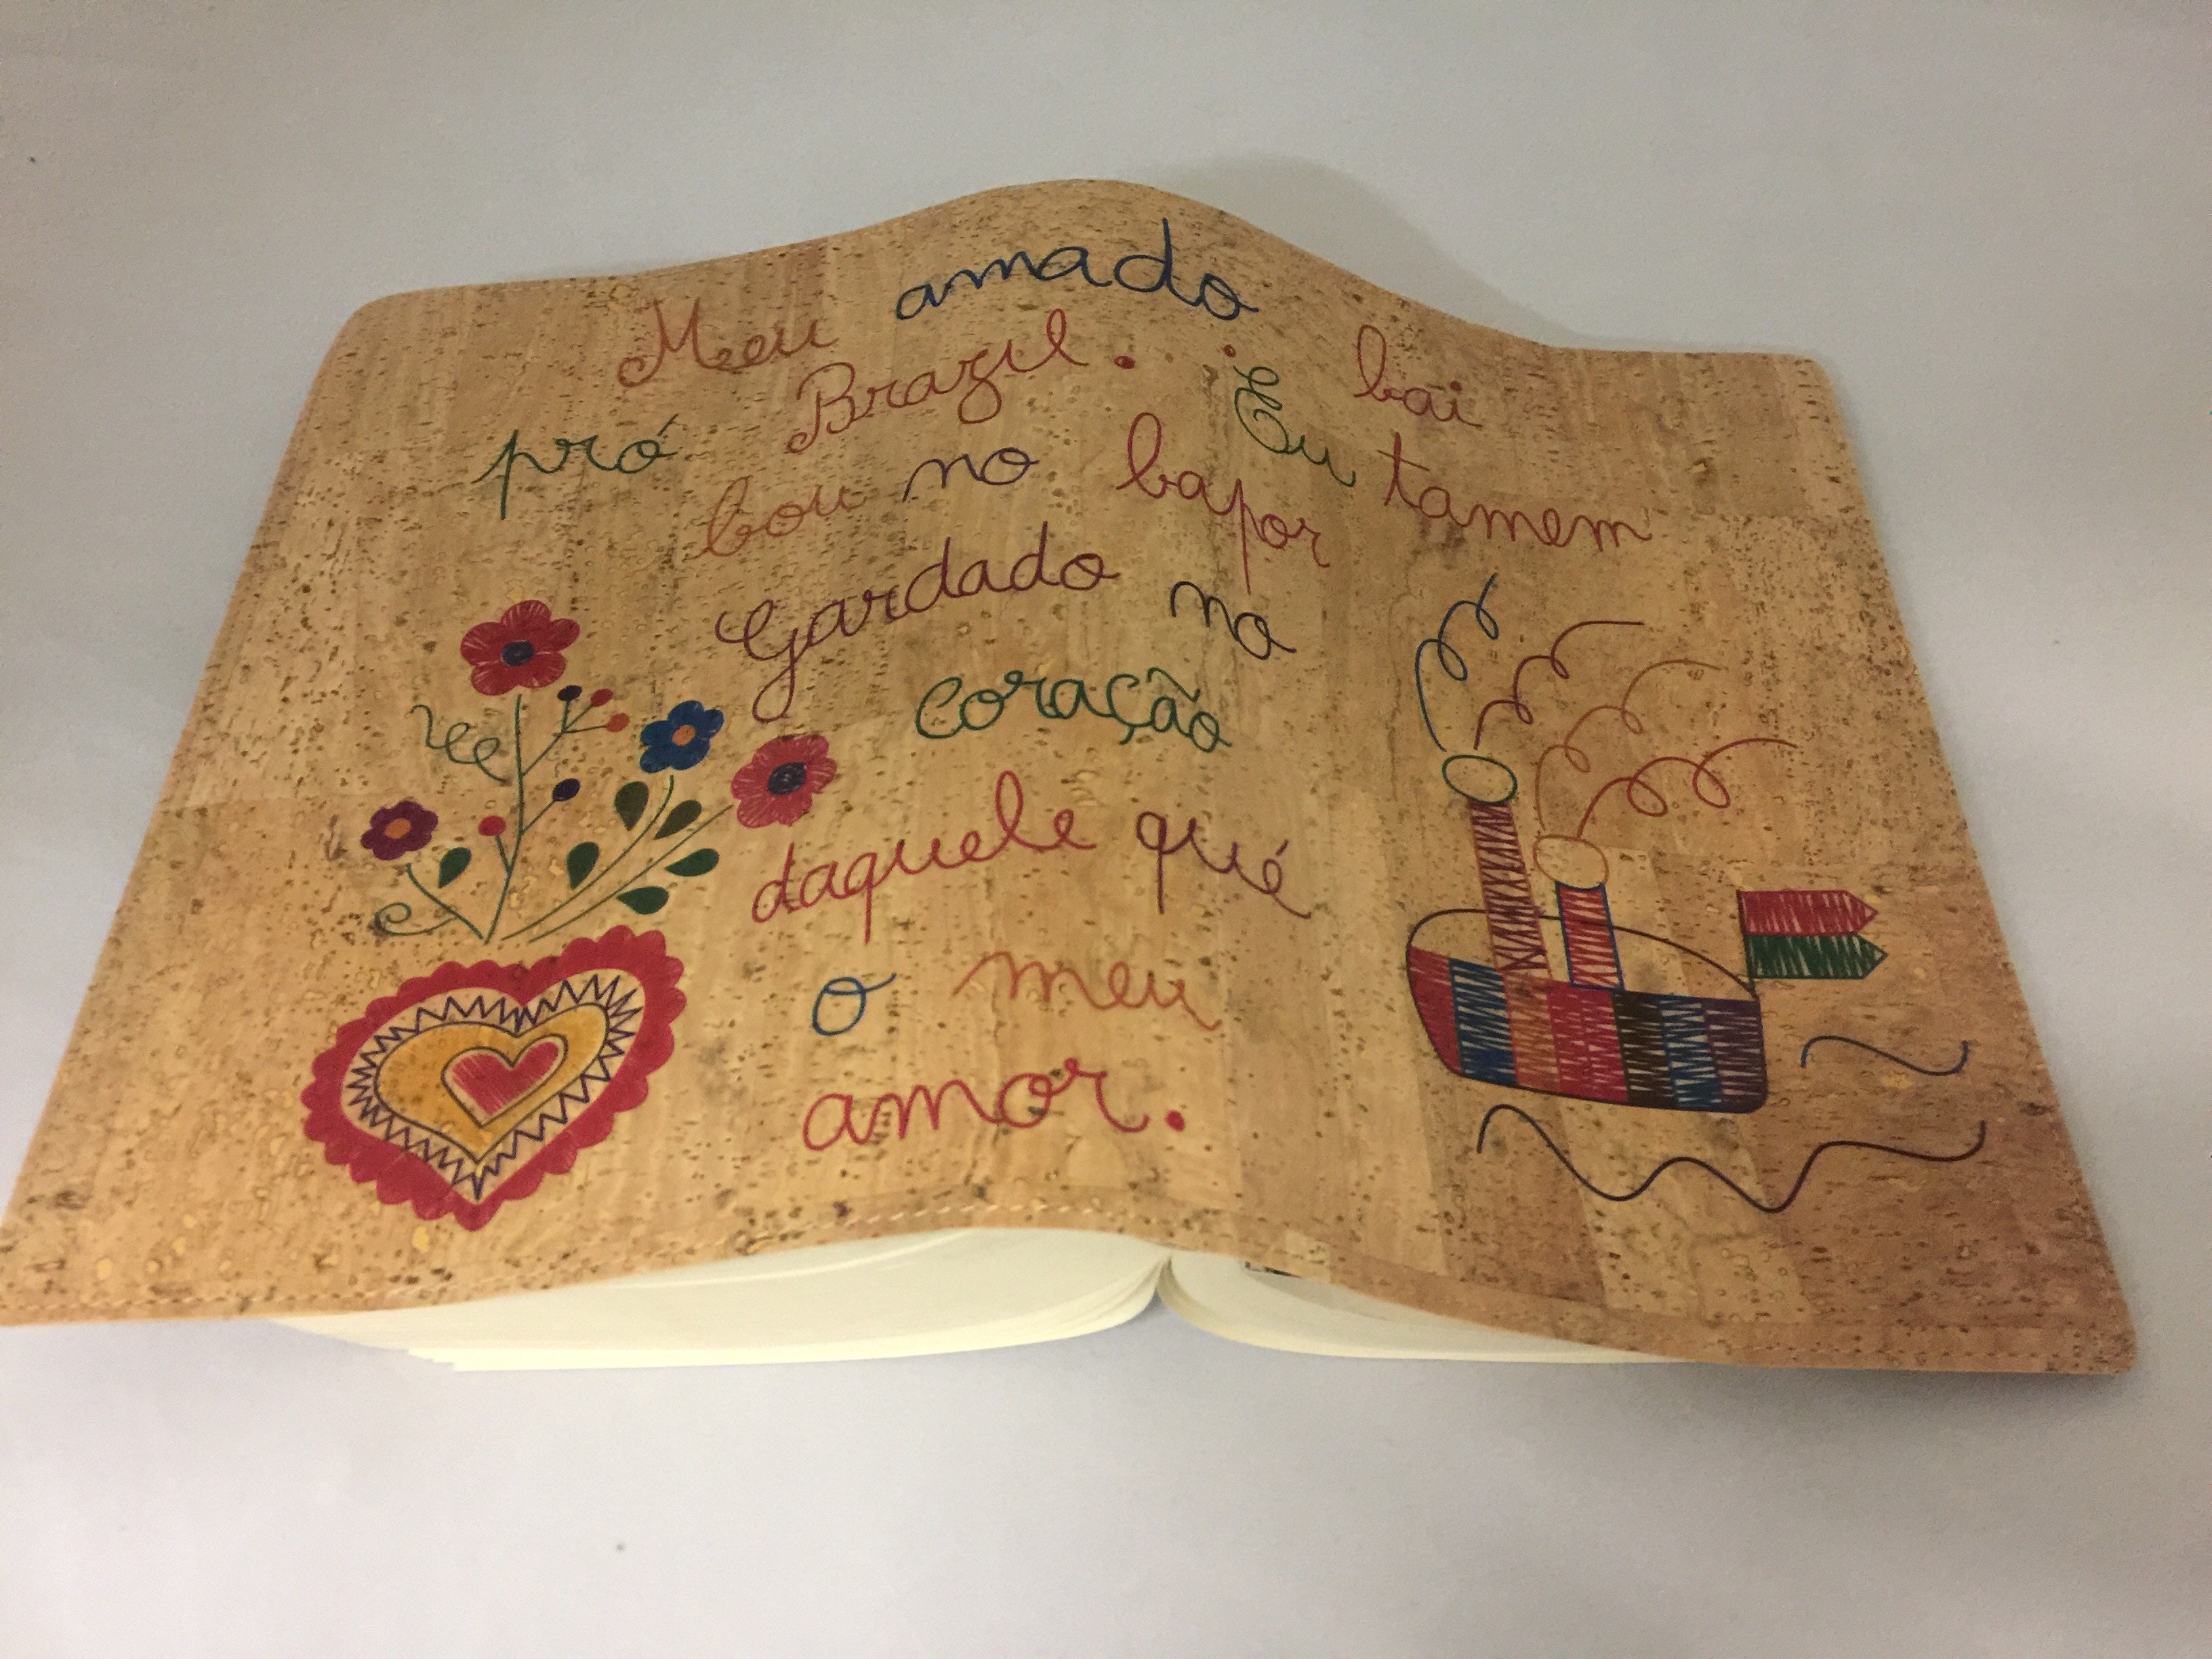 Meu amado bai
pró Brazil. Eu tamem
bou no bapor
Gardado no
coração
daquele qué
o meu
amor.